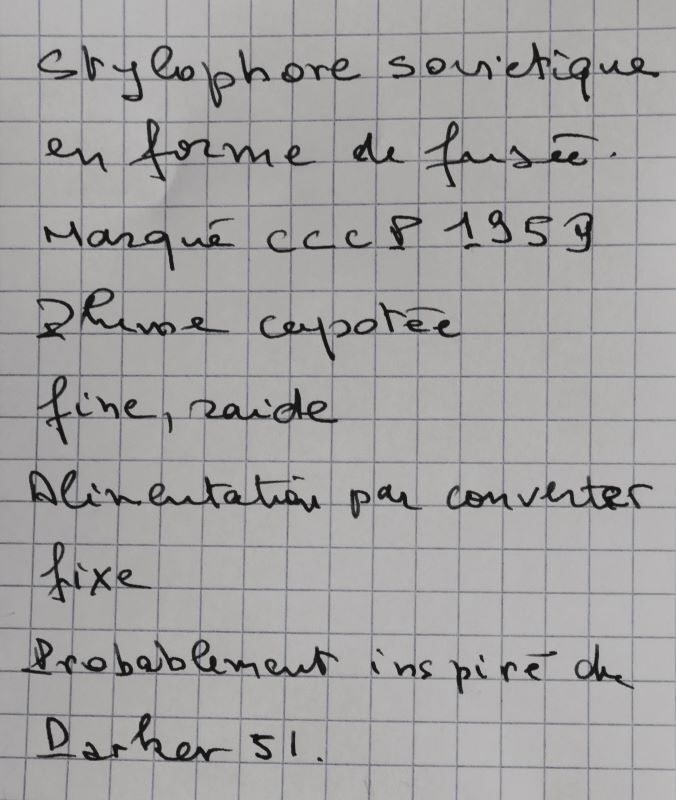 Stylophore soviétique
en forme de fusée.
Marqué CCCP 1959
Plume capotée
fine, raide
Alimentation par converter
fixe
Probablement inspiré du
Parker 51.